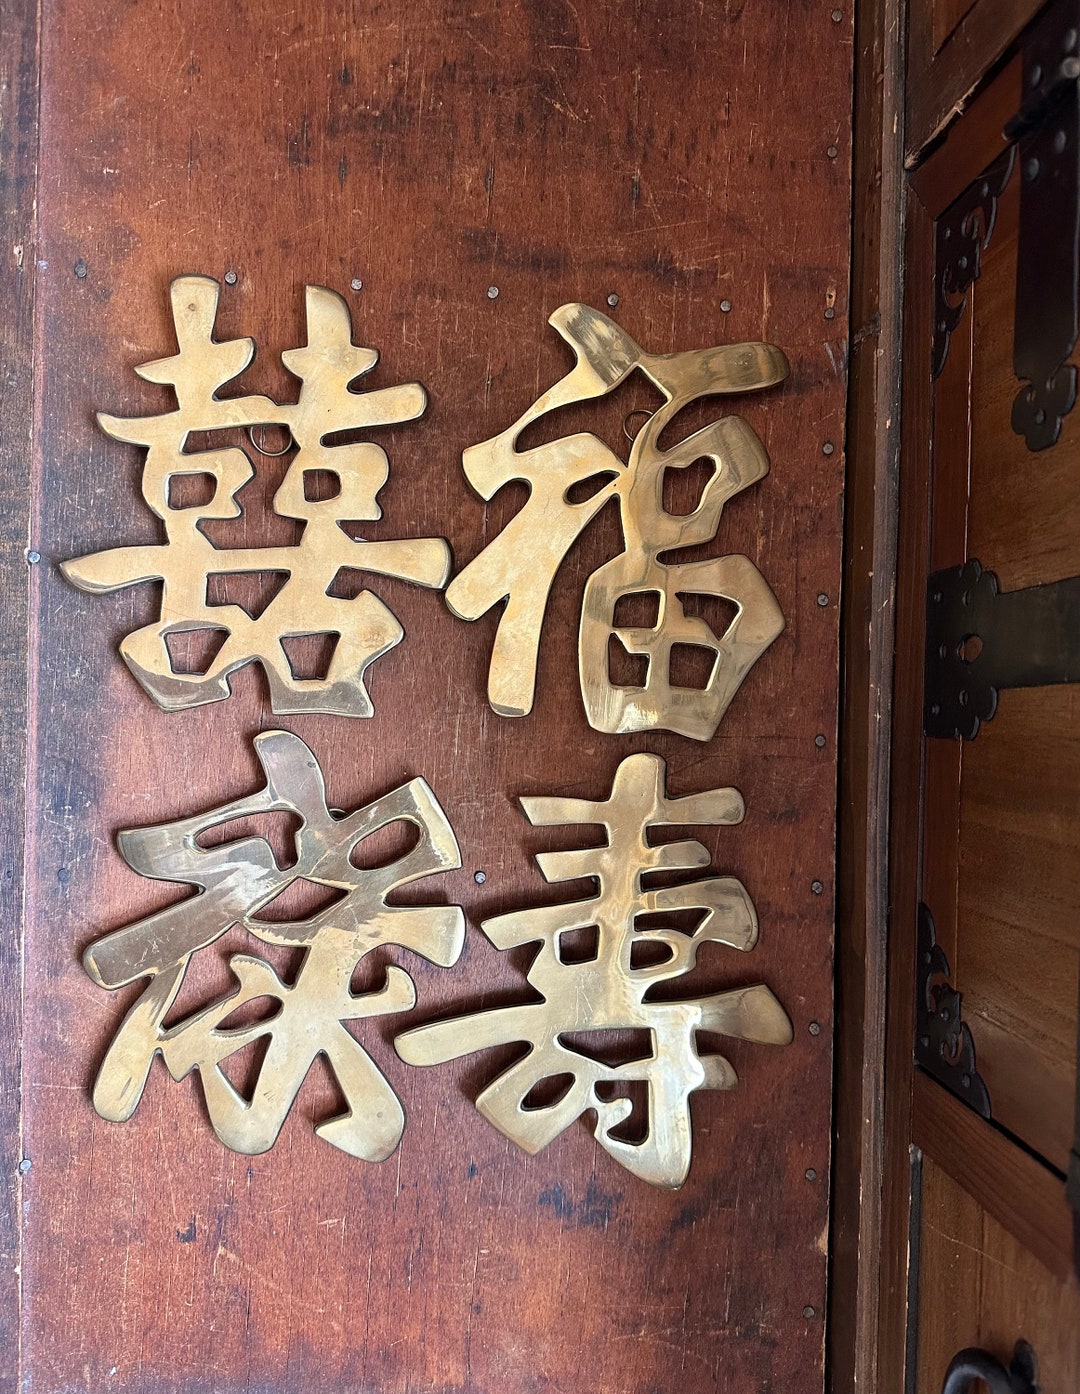 囍福
祿壽